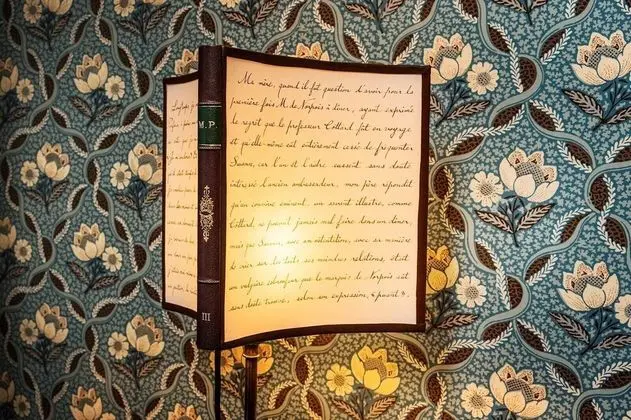 M.P.
III
Ma mère, quand il fût question d'avoir pour la
première fois M. de Norpois à dîner, ayant exprimé
le regret que le professeur Cottard fût en voyage
et qu'elle-même eût entièrement cessé de fréquenter
Swann, car l'un et l'autre eussent sans doute
intéressé l'ancien ambassadeur, mon père répondit
qu'un convive éminent, un savant illustre, comme
Cottard, ne pouvait jamais mal faire dans un dîner,
mais que Swann, avec son ostentation, avec sa manière
de crier sur les toits ses moindres relations, était
un vulgaire esbroufeur que le marquis de Norpois eût
sans doute trouvé, selon son expression, « puant ».